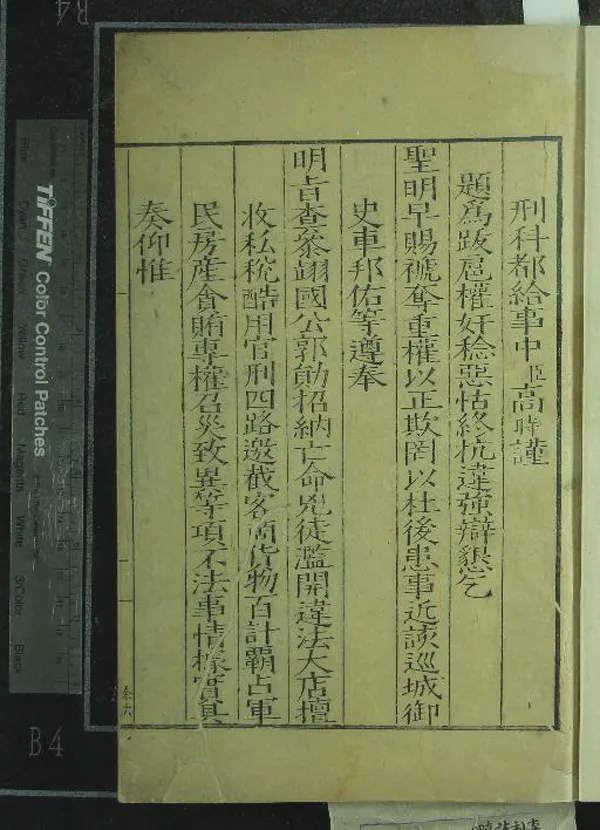 刑科都給事中臣高時謹
題為跋扈權奸稔惡怙終抗違強辯懇乞
聖明早賜褫奪重權以正欺罔以杜後患事近該巡城御
史車邦佑等遵奉
明旨查叅翊國公郭勛招納亡命兇徒濫開違法大店擅
收私稅酷用官刑四路邀截客啇貨物百計霸占軍
民房產貪賄專權召災致異等項不法事情據實具
奏仰惟
TIFFEN Color Control Patches
Cyan
Green
Yellow
Red
Magenta
White
3/Color
Black
B4
B4